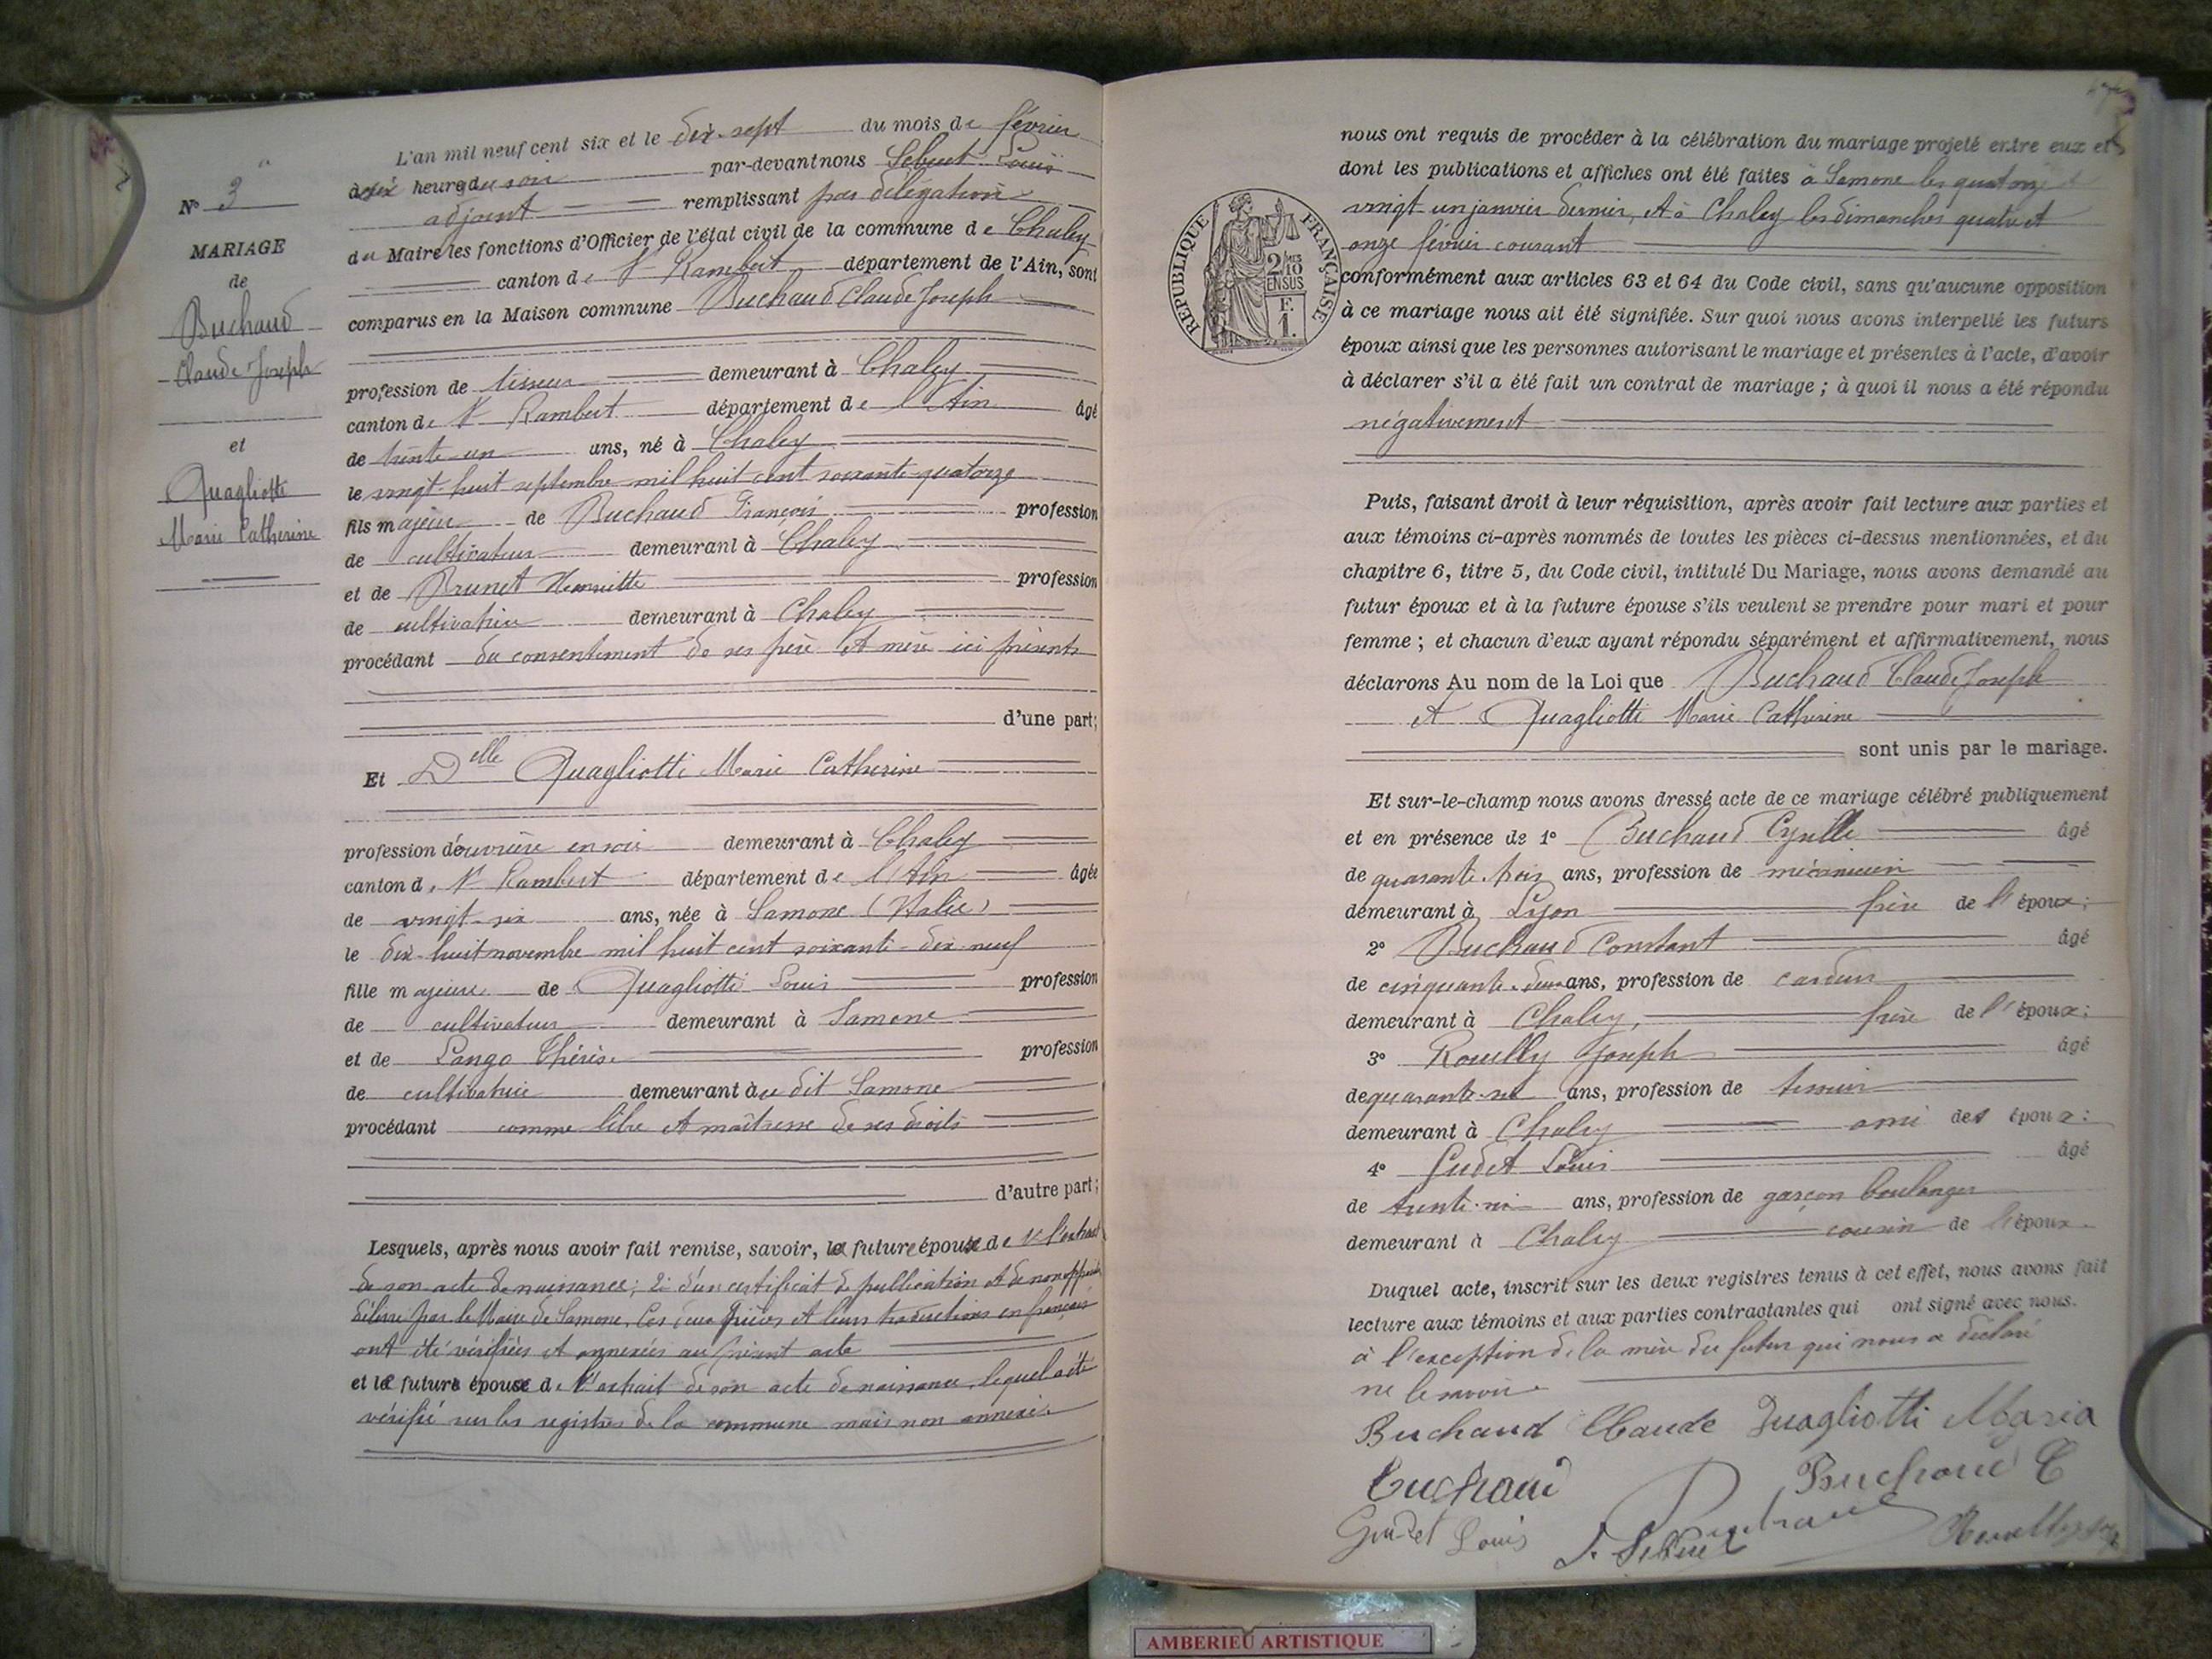 N° 3
MARIAGE
de
Buchaud
Claude Joseph
et
Quagliotti
Marie Catherine
L'an mil neuf cent six et le dix-sept du mois de février
à six heures du soir par-devant nous Louis
adjoint remplissant par délégation
du Maire les fonctions d'Officier de l'état civil de la commune de Chaley
canton de St Rambert département de l'Ain, sont
comparus en la Maison commune Buchaud Claude Joseph
profession de tisseur demeurant à Chaley
canton de St Rambert département de l'Ain âgé
de trente-un ans, né à Chaley
le vingt-huit septembre mil huit cent soixante-quatorze
fils majeur de Buchaud François profession
de cultivateur demeurant à Chaley
et de Brunet Henriette profession
de cultivatrice demeurant à Chaley
procédant du consentement de ses père et mère ici présents
d'une part;
Et Delle Quagliotti Marie Catherine
profession d'ouvrière en soie demeurant à Chaley
canton de St Rambert département de l'Ain âgée
de vingt-six ans, née à Samone (Italie)
le dix-huit novembre mil huit cent soixante-dix-neuf
fille majeure de Quagliotti Louis profession
de cultivateur demeurant à Samone
et de Thérèse profession
de cultivatrice demeurant à u dit Samone
procédant comme libre et maîtresse de ses droits
d'autre part;
Lesquels, après nous avoir fait remise, savoir, la future épouse de 1° l'extrait
de son acte de naissance; 2° d'un certificat de publication et de non opposition
délivré par le Maire de Samone. Ces deux pièces et leurs traductions en français
ont été vérifiées et annexées au présent acte
et le futur époux de l'extrait de son acte de naissance, lequel a été
vérifié sur les registres de la commune mais non annexé.
nous ont requis de procéder à la célébration du mariage projeté entre eux et
dont les publications et affiches ont été faites à Samone les quatorze et
vingt-un janvier dernier, et à Chaley les dimanches quatre et
onze février courant
RÉPUBLIQUE FRANÇAISE
2/10 MES
EN SUS
F.
1.
conformément aux articles 63 et 64 du Code civil, sans qu'aucune opposition
à ce mariage nous ait été signifiée. Sur quoi nous avons interpellé les futurs
époux ainsi que les personnes autorisant le mariage et présentes à l'acte, d'avoir
à déclarer s'il a été fait un contrat de mariage; à quoi il nous a été répondu
négativement
Puis, faisant droit à leur réquisition, après avoir fait lecture aux parties et
aux témoins ci-après nommés de toutes les pièces ci-dessus mentionnées, et du
chapitre 6, titre 5, du Code civil, intitulé Du Mariage, nous avons demandé au
futur époux et à la future épouse s'ils veulent se prendre pour mari et pour
femme; et chacun d'eux ayant répondu séparément et affirmativement, nous
déclarons Au nom de la Loi que Buchaud Claude Joseph
et Quagliotti Marie Catherine
sont unis par le mariage.
Et sur-le-champ nous avons dressé acte de ce mariage célébré publiquement
et en présence de 1° Buchaud Cyrille âgé
de quarante-trois ans, profession de mécanicien
demeurant à Lyon frère de l'époux;
2° Buchaud Constant âgé
de cinquante-deux ans, profession de cardeur
demeurant à Chaley, frère de l'époux;
3° Rouilly Joseph âgé
de quarante-sept ans, profession de tisseur
demeurant à Chaley ami des époux;
4° Gudet Louis âgé
de trente-six ans, profession de garçon boulanger
demeurant à Chaley cousin de l'époux.
Duquel acte, inscrit sur les deux registres tenus à cet effet, nous avons fait
lecture aux témoins et aux parties contractantes qui ont signé avec nous.
à l'exception de la mère du futur qui nous a déclaré
ne le savoir.
Buchaud Claude Quagliotti Maria
Buchaud Buchaud C
Louis Buchaud
AMBERIEU ARTISTIQUE